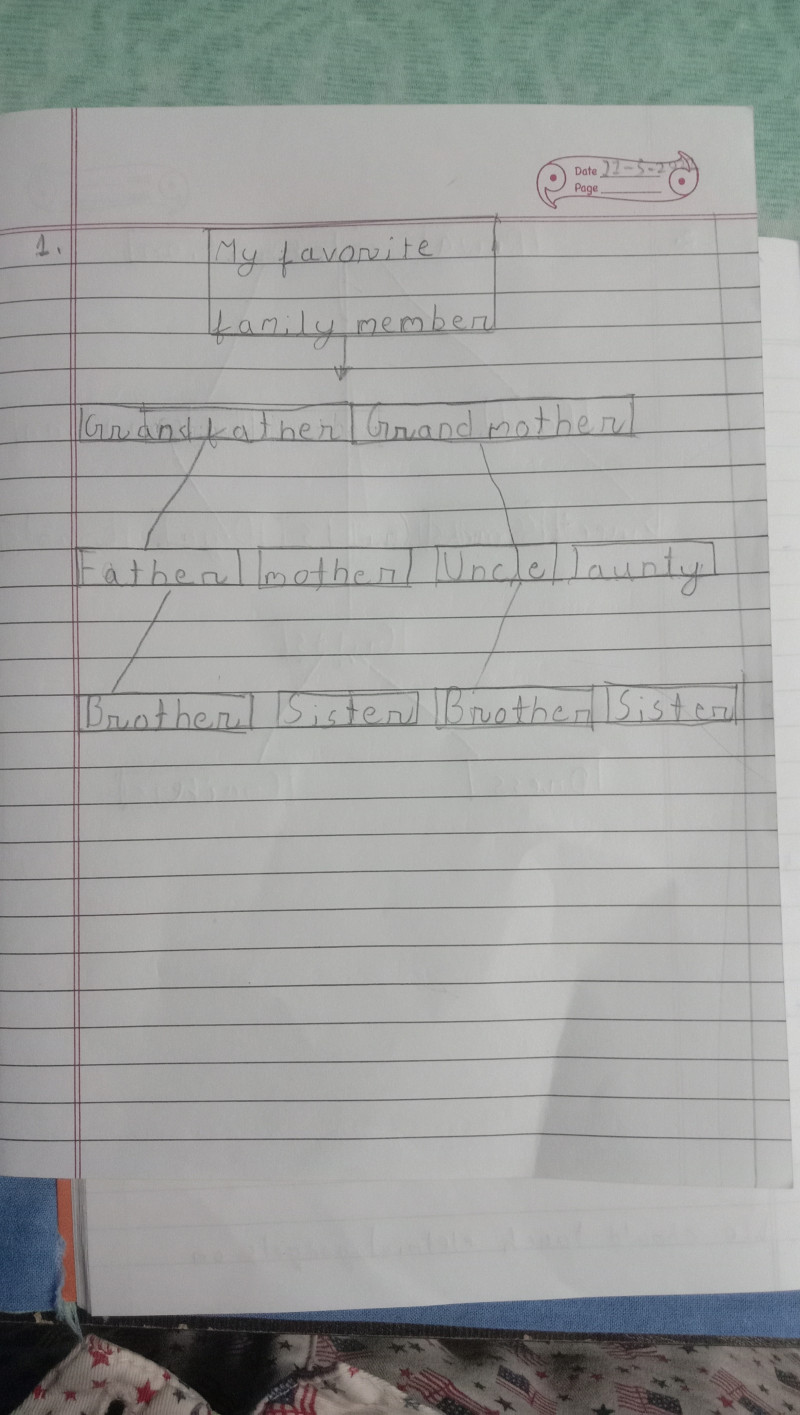 Date 22-5-2
Page
1.
My favorite
family member
Grandfather Grandmother
Father mother Uncle aunty
Brother Sister Brother Sister